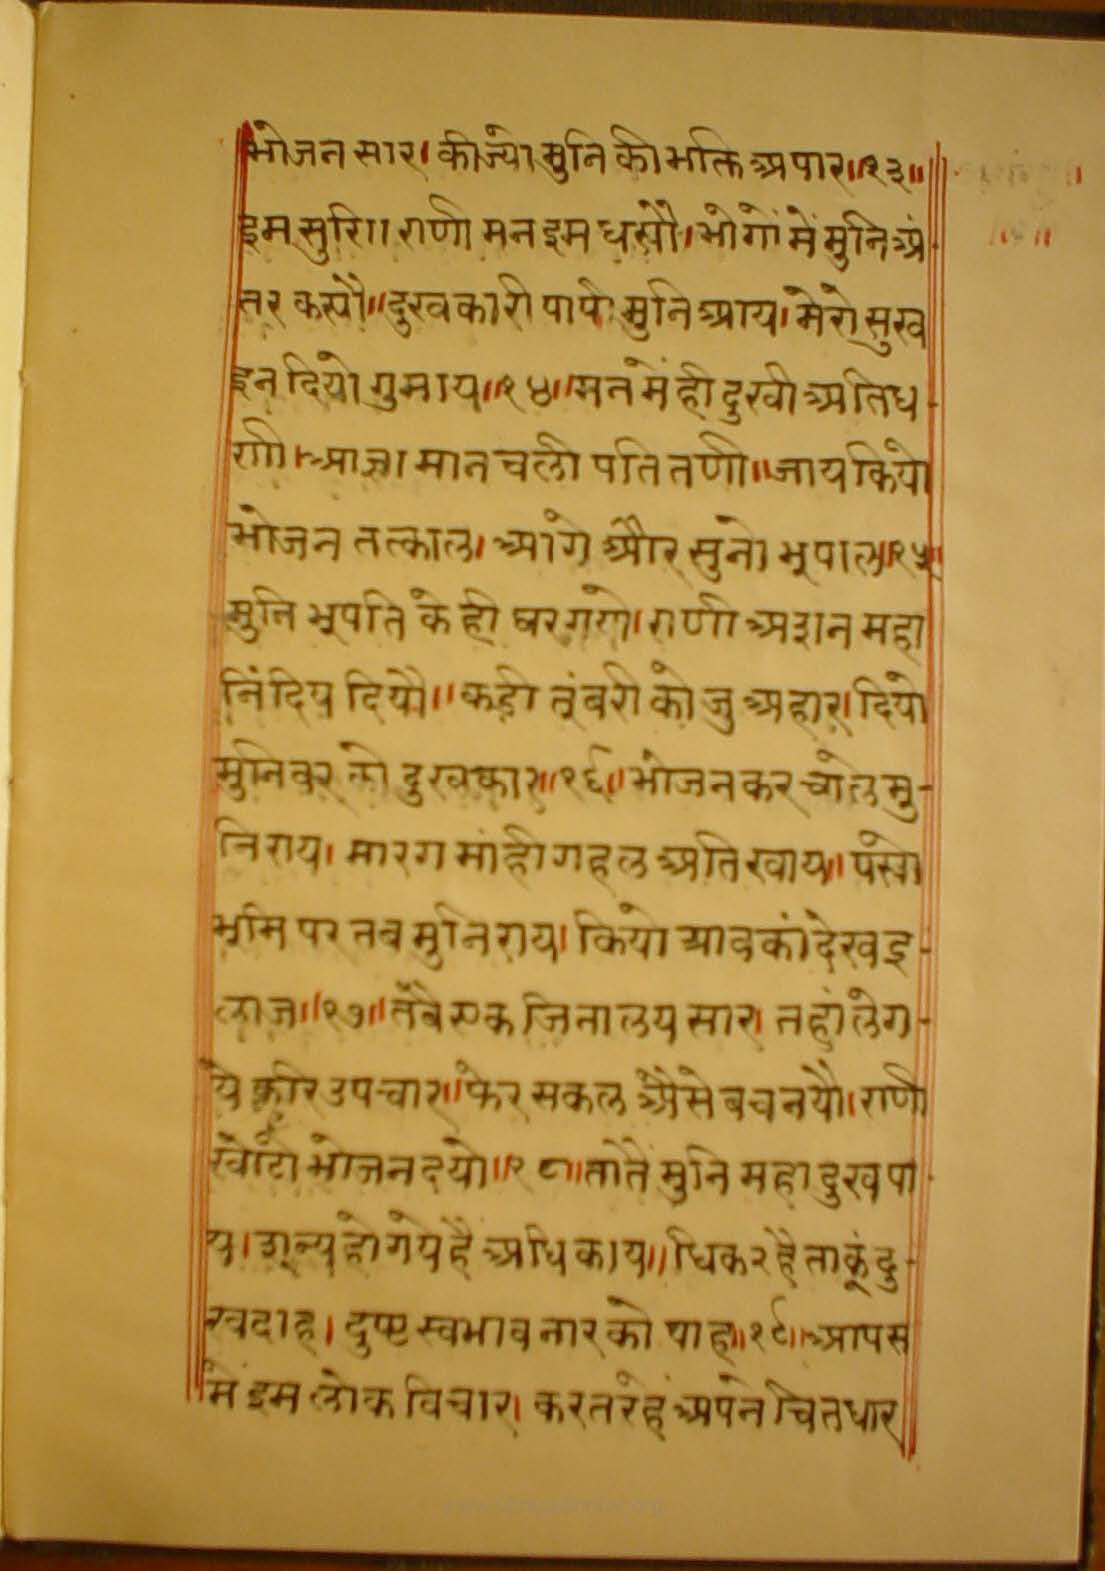 भोजन सार। कीज्यो मुनि की भक्ति अपार॥१३॥
इम सुणि राणी मन इम धर्यौ। भोगों में मुनि अं-
तर कर्यौ॥ दुखकारी पापी मुनि आय। मेरो सुख
इन दियो गुमाय॥१४॥ मन में ही दुखी अति ध-
णी। आज्ञा मान चली पति तणी॥ जाय कियो
भोजन तत्काल। आगे और सुनो भूपाल॥१५
मुनि भूपति के ही घर गयो। राणी अशन महा
निंदिय दियौ॥ कडी तूंबरी को जु अहार। दियो
मुनिवर को दुखकार॥१६॥ भोजन कर चाले मु-
निराय। मारग मांही गहल अति खाय॥ पर्यो
भूमि पर तब मुनिराय। कियो श्रावकां देख इ-
लाज॥१७॥ तबै एक जिनालय सार। तहां ले ग-
ये करि उपचार॥ फेर सकल ऐसे बच नयौ। राणी
खोटो भोजन दयो॥१८॥ तातैं मुनि महा दुख पा-
य। शून्य हो गये हैं अधिकाय॥ धिक र है ताकूं दु-
खदाह। दुष्ट स्वभाव नार को पाह॥१९॥ आपस
में इम लोक विचार। करत रहें अपने चित धार